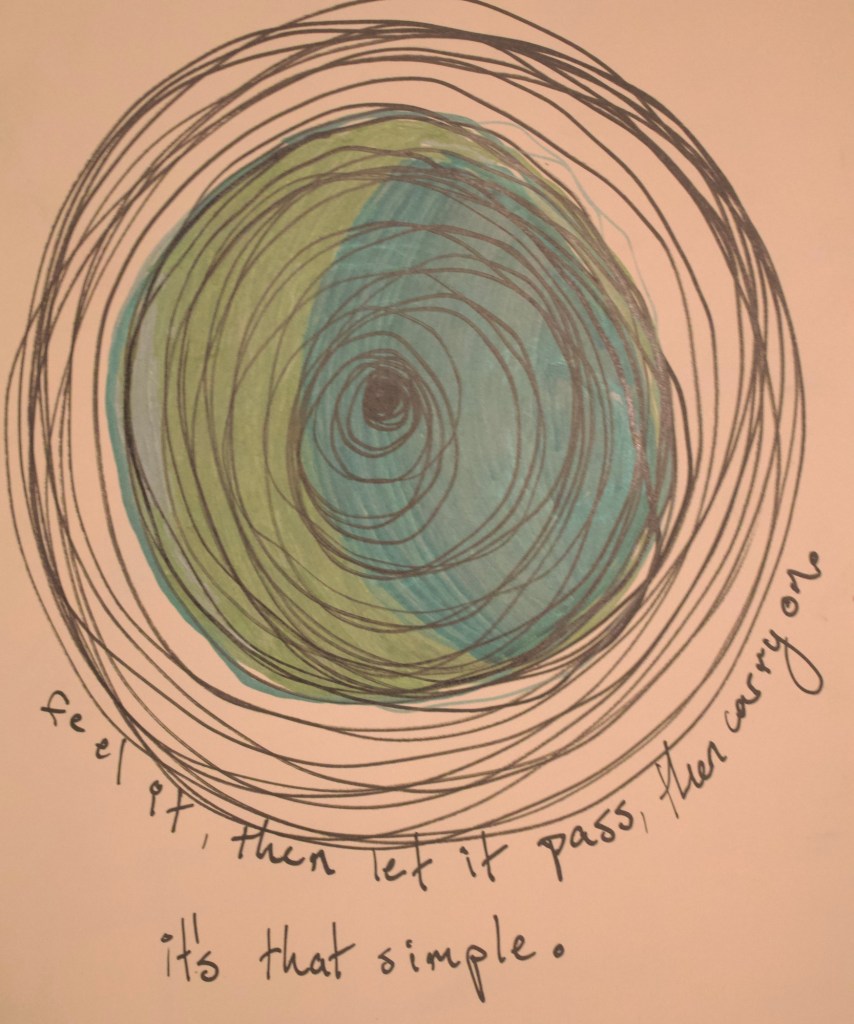 feel it, then let it pass, then carry on.
it's that simple.